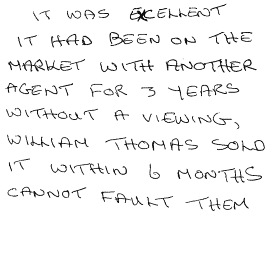 IT WAS EXCELLENT
IT HAD BEEN ON THE
MARKET WITH ANOTHER
AGENT FOR 3 YEARS
WITHOUT A VIEWING,
WILLIAM THOMAS SOLD
IT WITHIN 6 MONTHS
CANNOT FAULT THEM